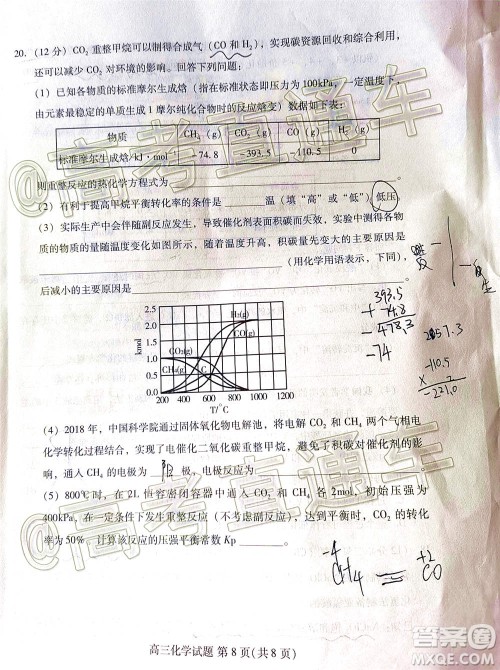 20.（12 分）CO₂ 重整甲烷可以制得合成气（CO 和 H₂），实现碳资源回收和综合利用，
还可以减少 CO₂ 对环境的影响。回答下列问题：
（1）已知各物质的标准摩尔生成焓（指在标准状态即压力为 100kPa，一定温度下，
由元素最稳定的单质生成 1 摩尔纯化合物时的反应焓变）数据如下表：
物质 CH₄（g） CO₂（g） CO（g） H₂（g）
标准摩尔生成焓/kJ·mol －74.8 －393.5 －110.5 0
则重整反应的热化学方程式为
（2）有利于提高甲烷平衡转化率的条件是 温（填“高”或“低”）低压
（3）实际生产中会伴随副反应发生，导致催化剂表面积碳而失效，实验测得体系中各物
质的物质的量随温度变化如图所示，随着温度升高，积碳量先变大的主要原因是
（用化学用语表示，下同），
后减小的主要原因是
393.5
+ 74.8
-478.3
-74
257.3
-110.5
× 2
-221.0
2.5
2.0
1.5
1.0
0.5
0.0
kmol
H₂(g)
CO(g)
CO₂(g)
CH₄(g)
C
200 400 600 800 1000 1200
T/°C
（4）2018 年，中国科学院通过固体氧化物电解池，将电解 CO₂ 和 CH₄ 两个气相电
化学转化过程结合，实现了电催化二氧化碳重整甲烷，避免了积碳对催化剂的影
响，通入 CH₄ 的电极为 阳 极，电极反应为
（5）800℃时，在 2L 恒容密闭容器中通入 CO₂ 和 CH₄ 各 2mol，初始压强为
400kPa，在一定条件下发生重整反应（不考虑副反应），达到平衡时，CO₂ 的转化
率为 50%，计算该反应的压强平衡常数 Kp 。
-4 +2
CH4 = CO
高三化学试题 第 8 页(共 8 页)
@高考直通车
@高考直通车
@高考直通车
答案圈
MXQE.COM